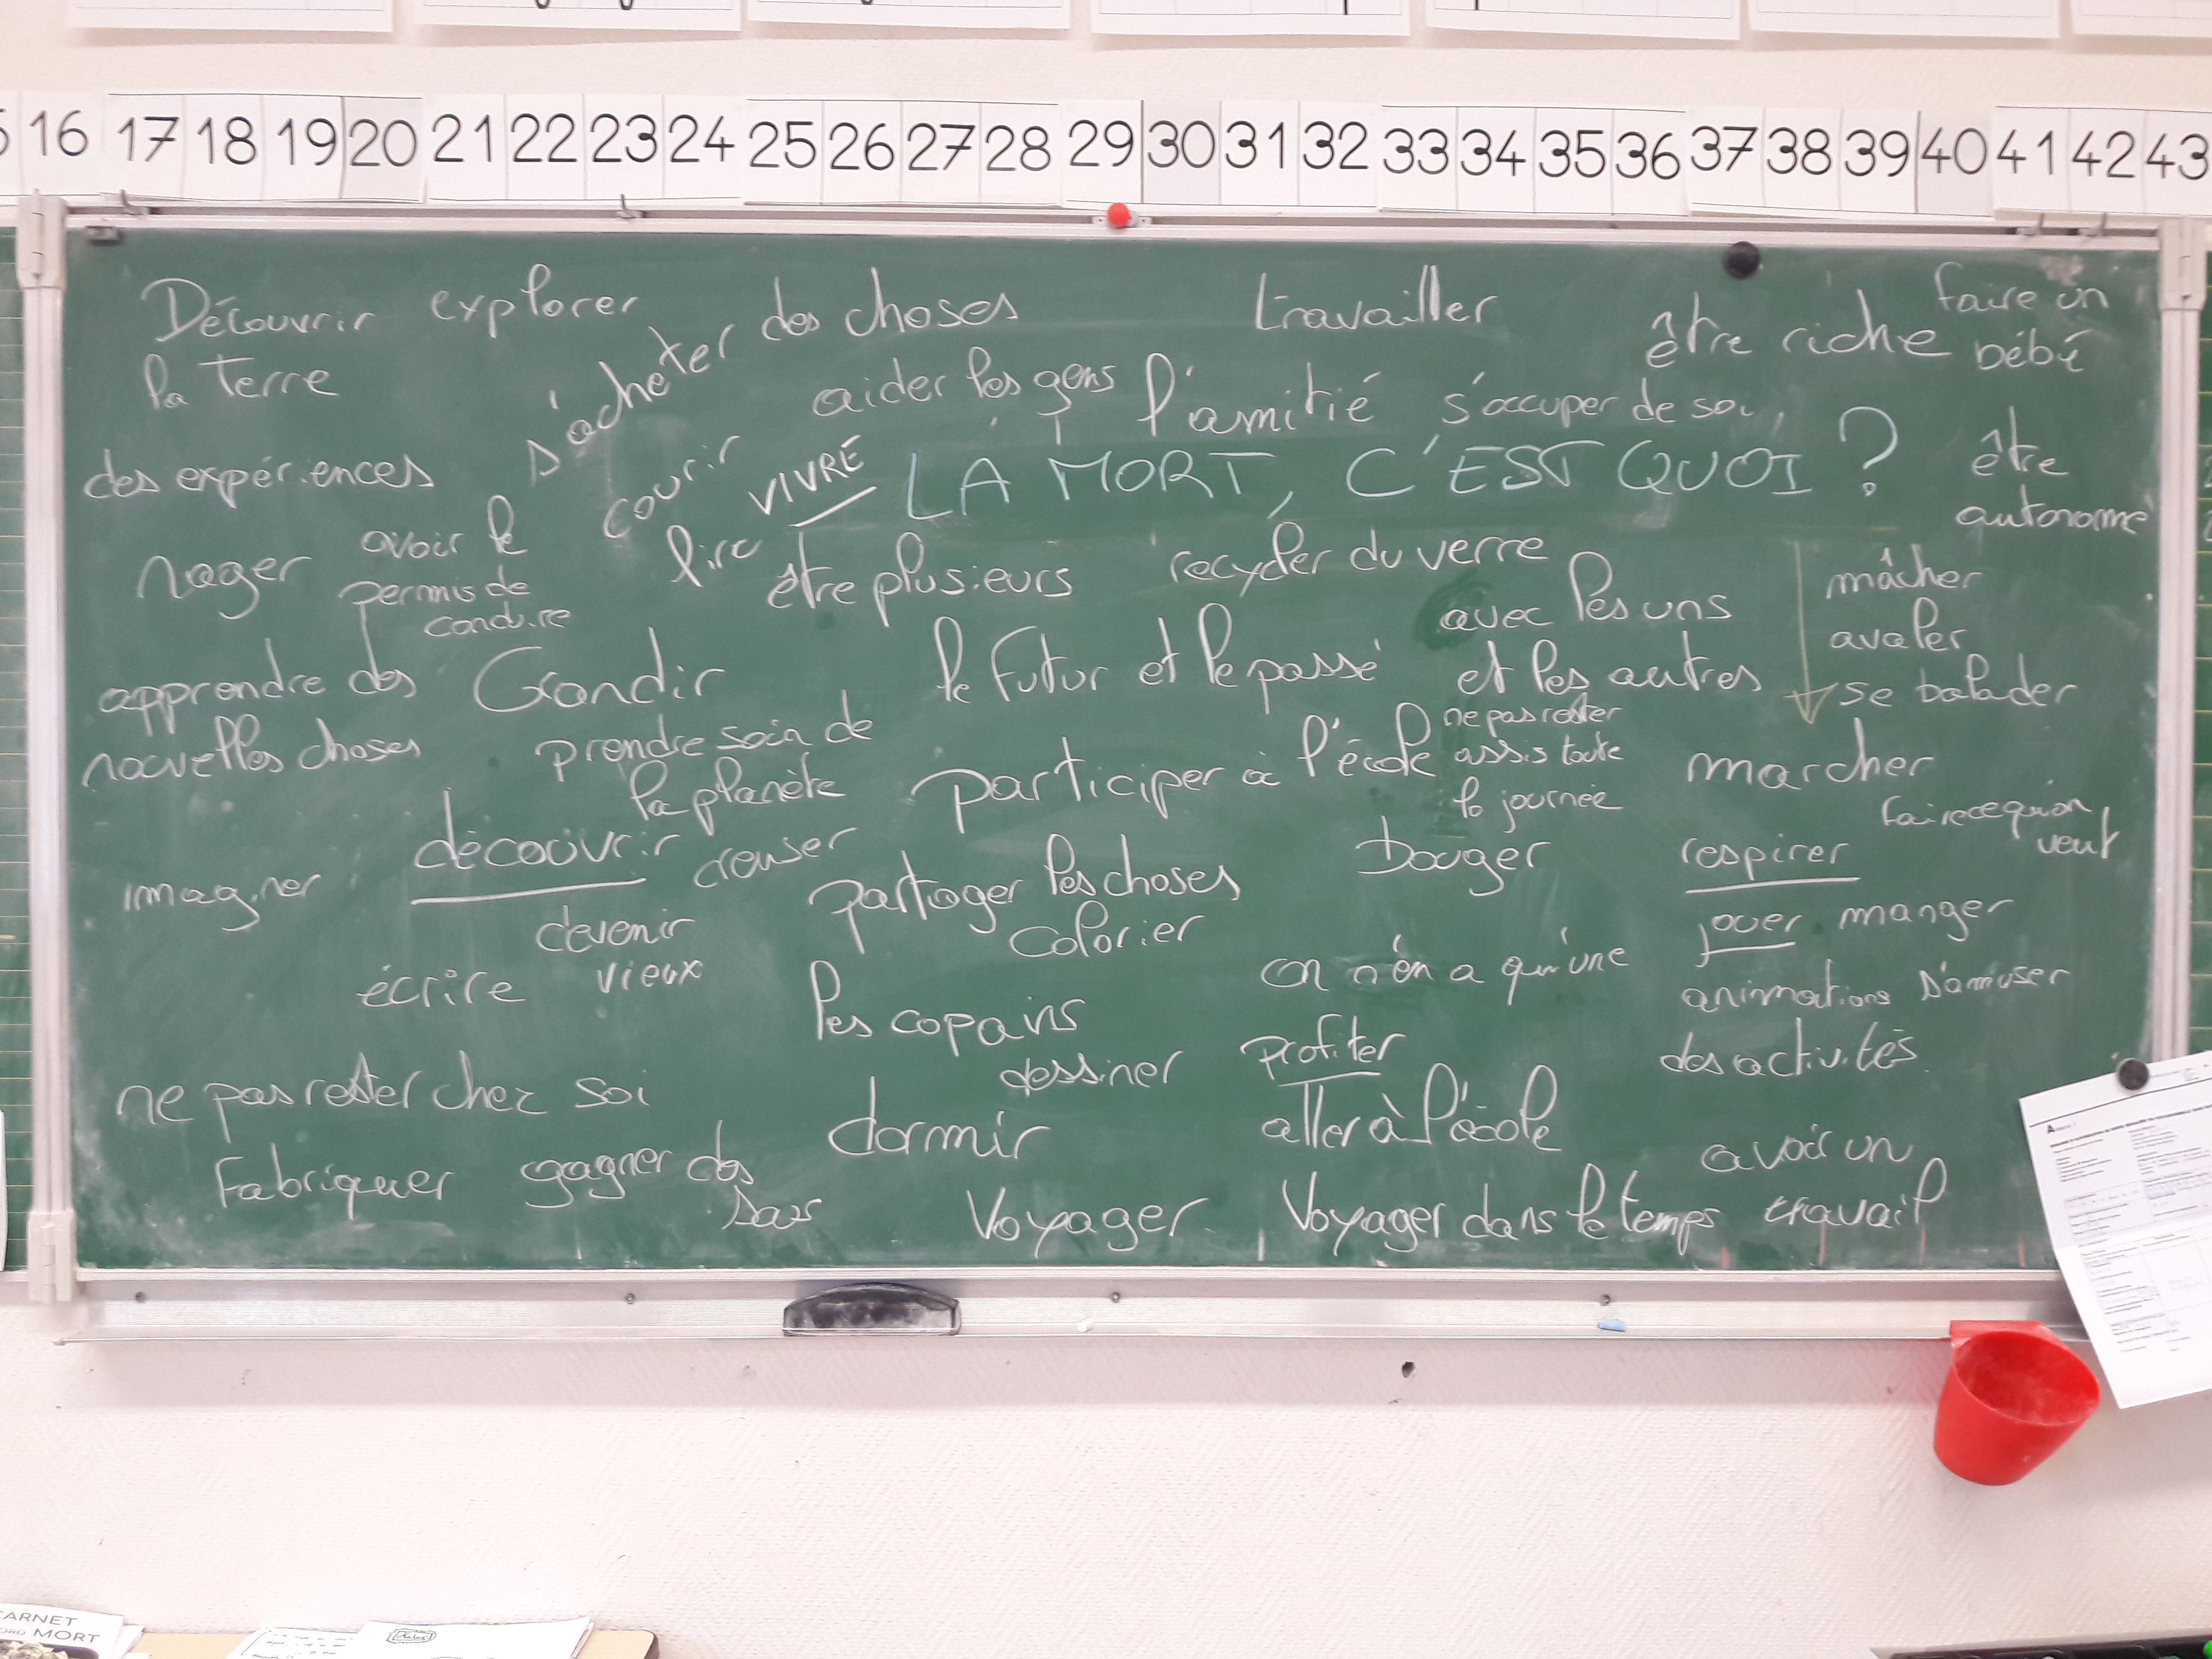 16 17 18 19 20 21 22 23 24 25 26 27 28 29 30 31 32 33 34 35 36 37 38 39 40 41 42 43
Découvrir
la terre
explorer
s'acheter des choses
travailler
être riche
faire un
bébé
aider les gens
l'amitié
s'occuper de soi
des expériences
courir
VIVRE
LA MORT, C'EST QUOI ?
être
autonome
nager
avoir le
permis de
conduire
lire
être plusieurs
recycler du verre
avec les uns
et les autres
mâcher
avaler
se balader
apprendre des
nouvelles choses
Grandir
le futur et le passé
prendre soin de
la planète
participer à l'école
ne pas rester
assis toute
la journée
marcher
faire ce qu'on
veut
imaginer
découvrir
creuser
partager les choses
Bouger
respirer
devenir
vieux
colorier
jouer
manger
écrire
les copains
on n'en a qu'une
animations
s'amuser
des activités
ne pas rester chez soi
dessiner
profiter
dormir
aller à l'école
Fabriquer
gagner des
sous
Voyager
Voyager dans le temps
avoir un
travail
CARNET
MORT